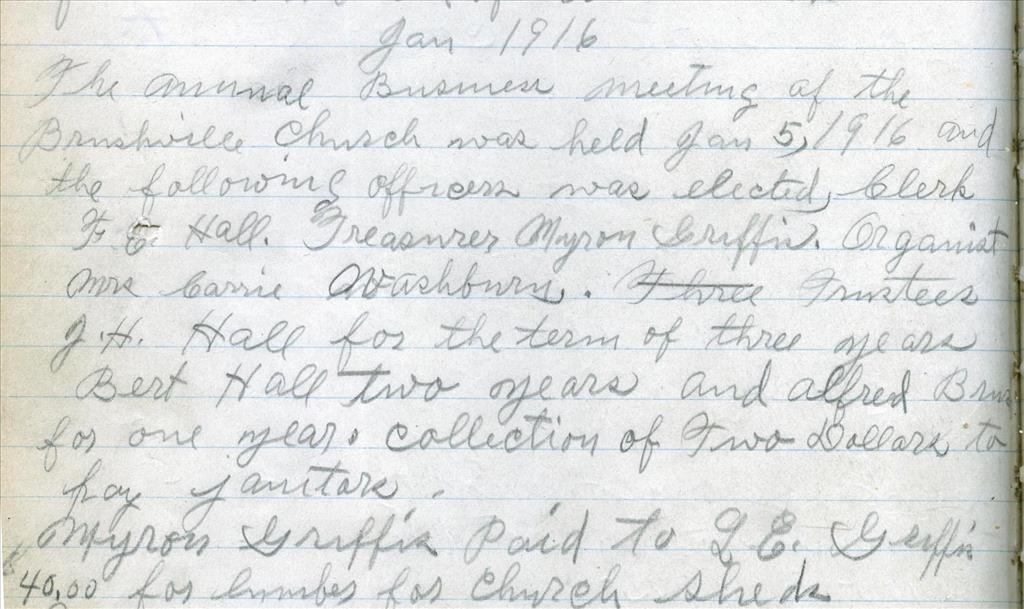 Jan 1916
The annual Business meeting of the
Brushville Church was held Jan 5, 1916 and
the following officers was elected, Clerk
F. E. Hall. Treasurer Myron Griffin. Organist
Mrs Carrie Washburn. Three Trustees
J. H. Hall for the term of three years
Bert Hall two years and alfred
for one year. collection of Two Dollars to
pay janitors.
Myron Griffin Paid to L E. Griffin
$40.00 for lumber for Church sheds